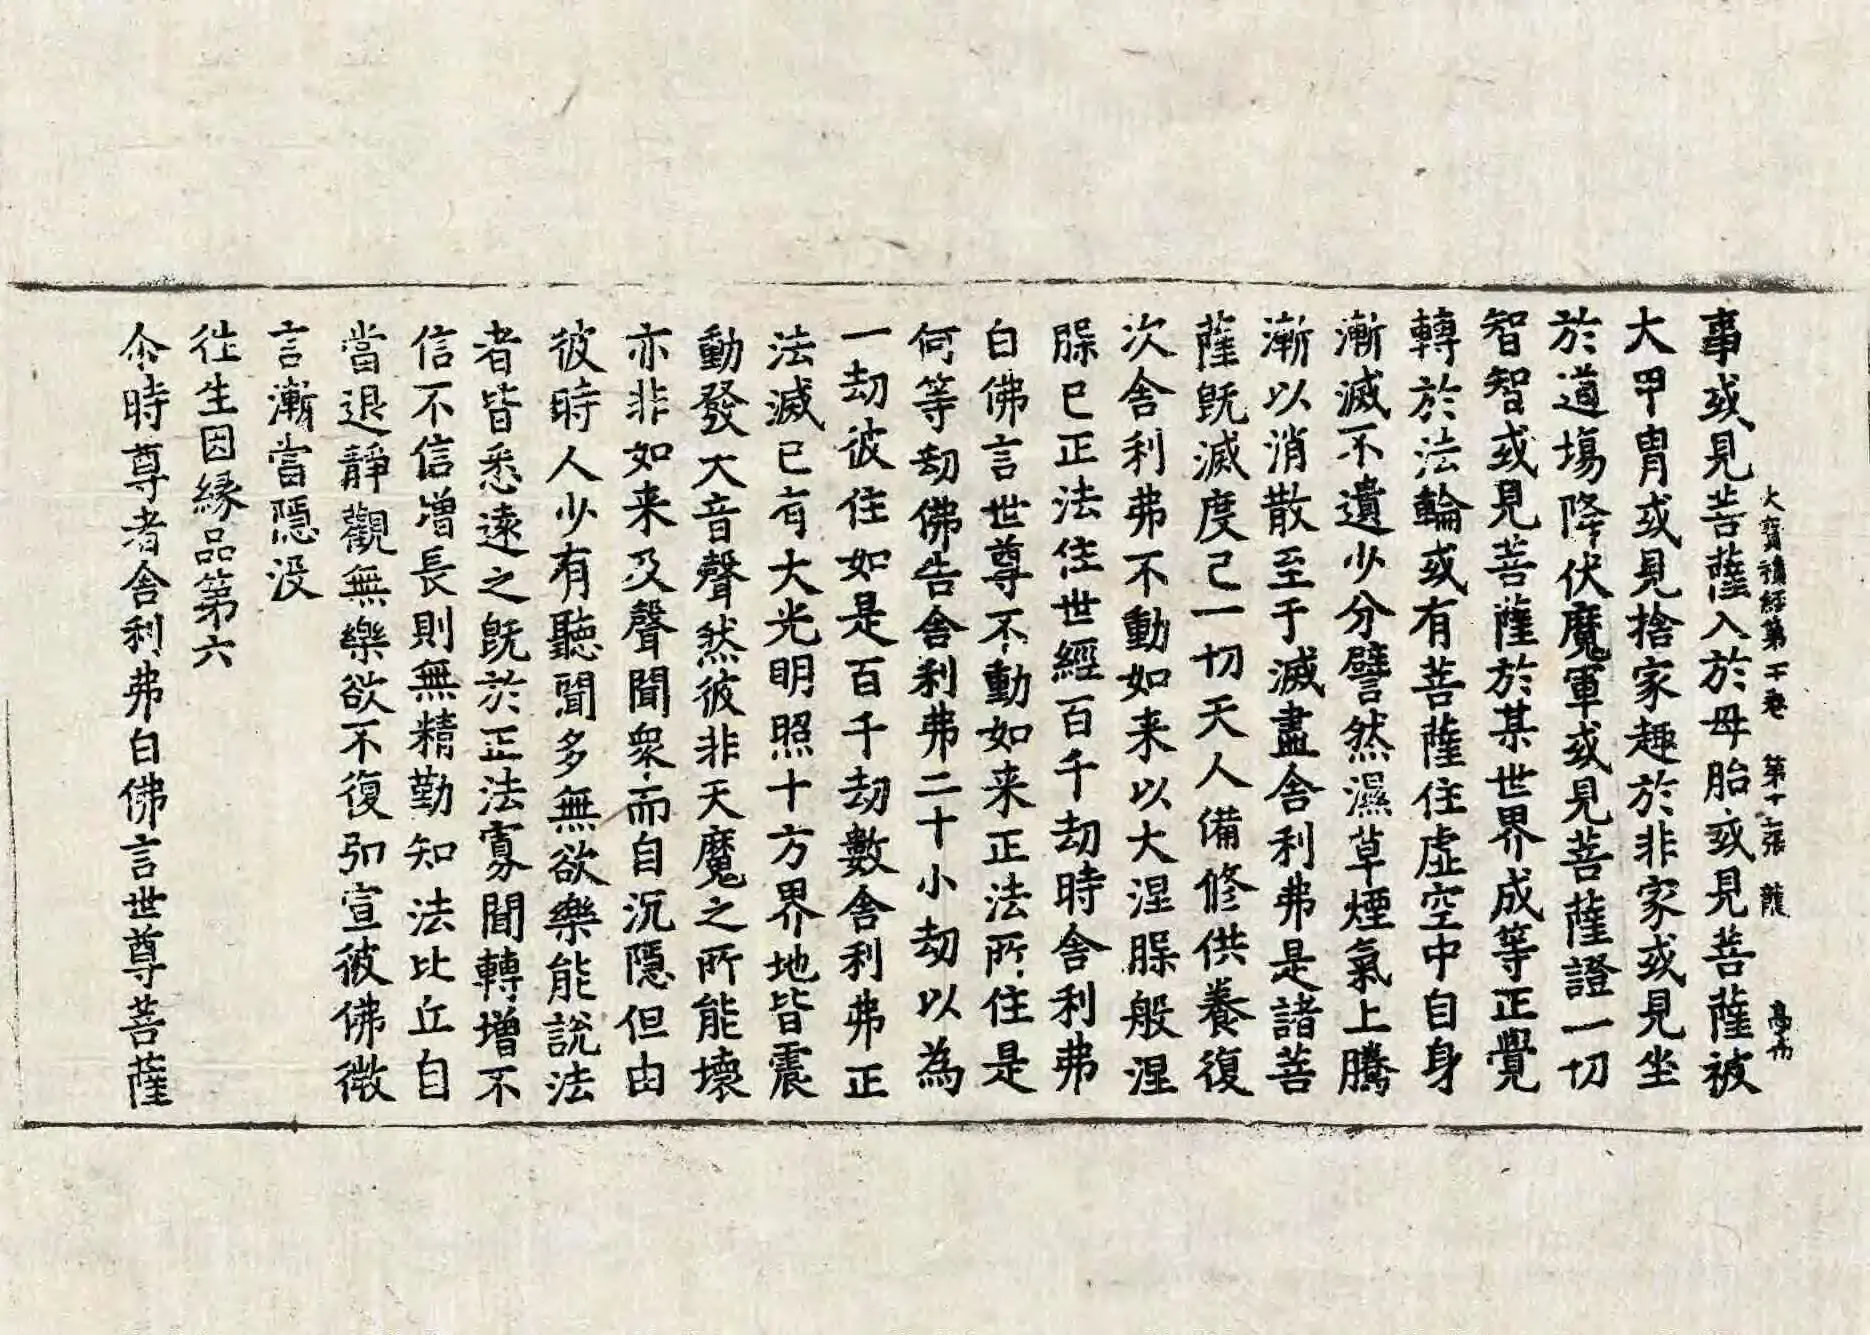 事或見菩薩入於母胎或見菩薩被
大甲胄或見捨家趣於非家或見坐
於道場降伏魔軍或見菩薩證一切
智智或見菩薩於某世界成等正覺
轉於法輪或有菩薩住虛空中自身
漸滅不遺少分譬然濕草煙氣上騰
漸以消散至于滅盡舍利弗是諸菩
薩旣滅度已一切天人備修供養復
次舍利弗不動如来以大涅槃般涅
槃已正法住世經百千劫時舍利弗
白佛言世尊不動如来正法所住是
何等劫佛告舍利弗二十小劫以為
一劫彼住如是百千劫數舍利弗正
法滅已有大光明照十方界地皆震
動發大音聲然彼非天魔之所能壞
亦非如来及聲聞衆而自沉隱但由
彼時人少有聽聞多無欲樂能說法
者皆悉遠之旣於正法寡聞轉增不
信不信增長則無精勤知法比丘自
當退靜觀無樂欲不復弘宣彼佛微
言漸當隱没
往生因縁品第六
尒時尊者舍利弗白佛言世尊菩薩